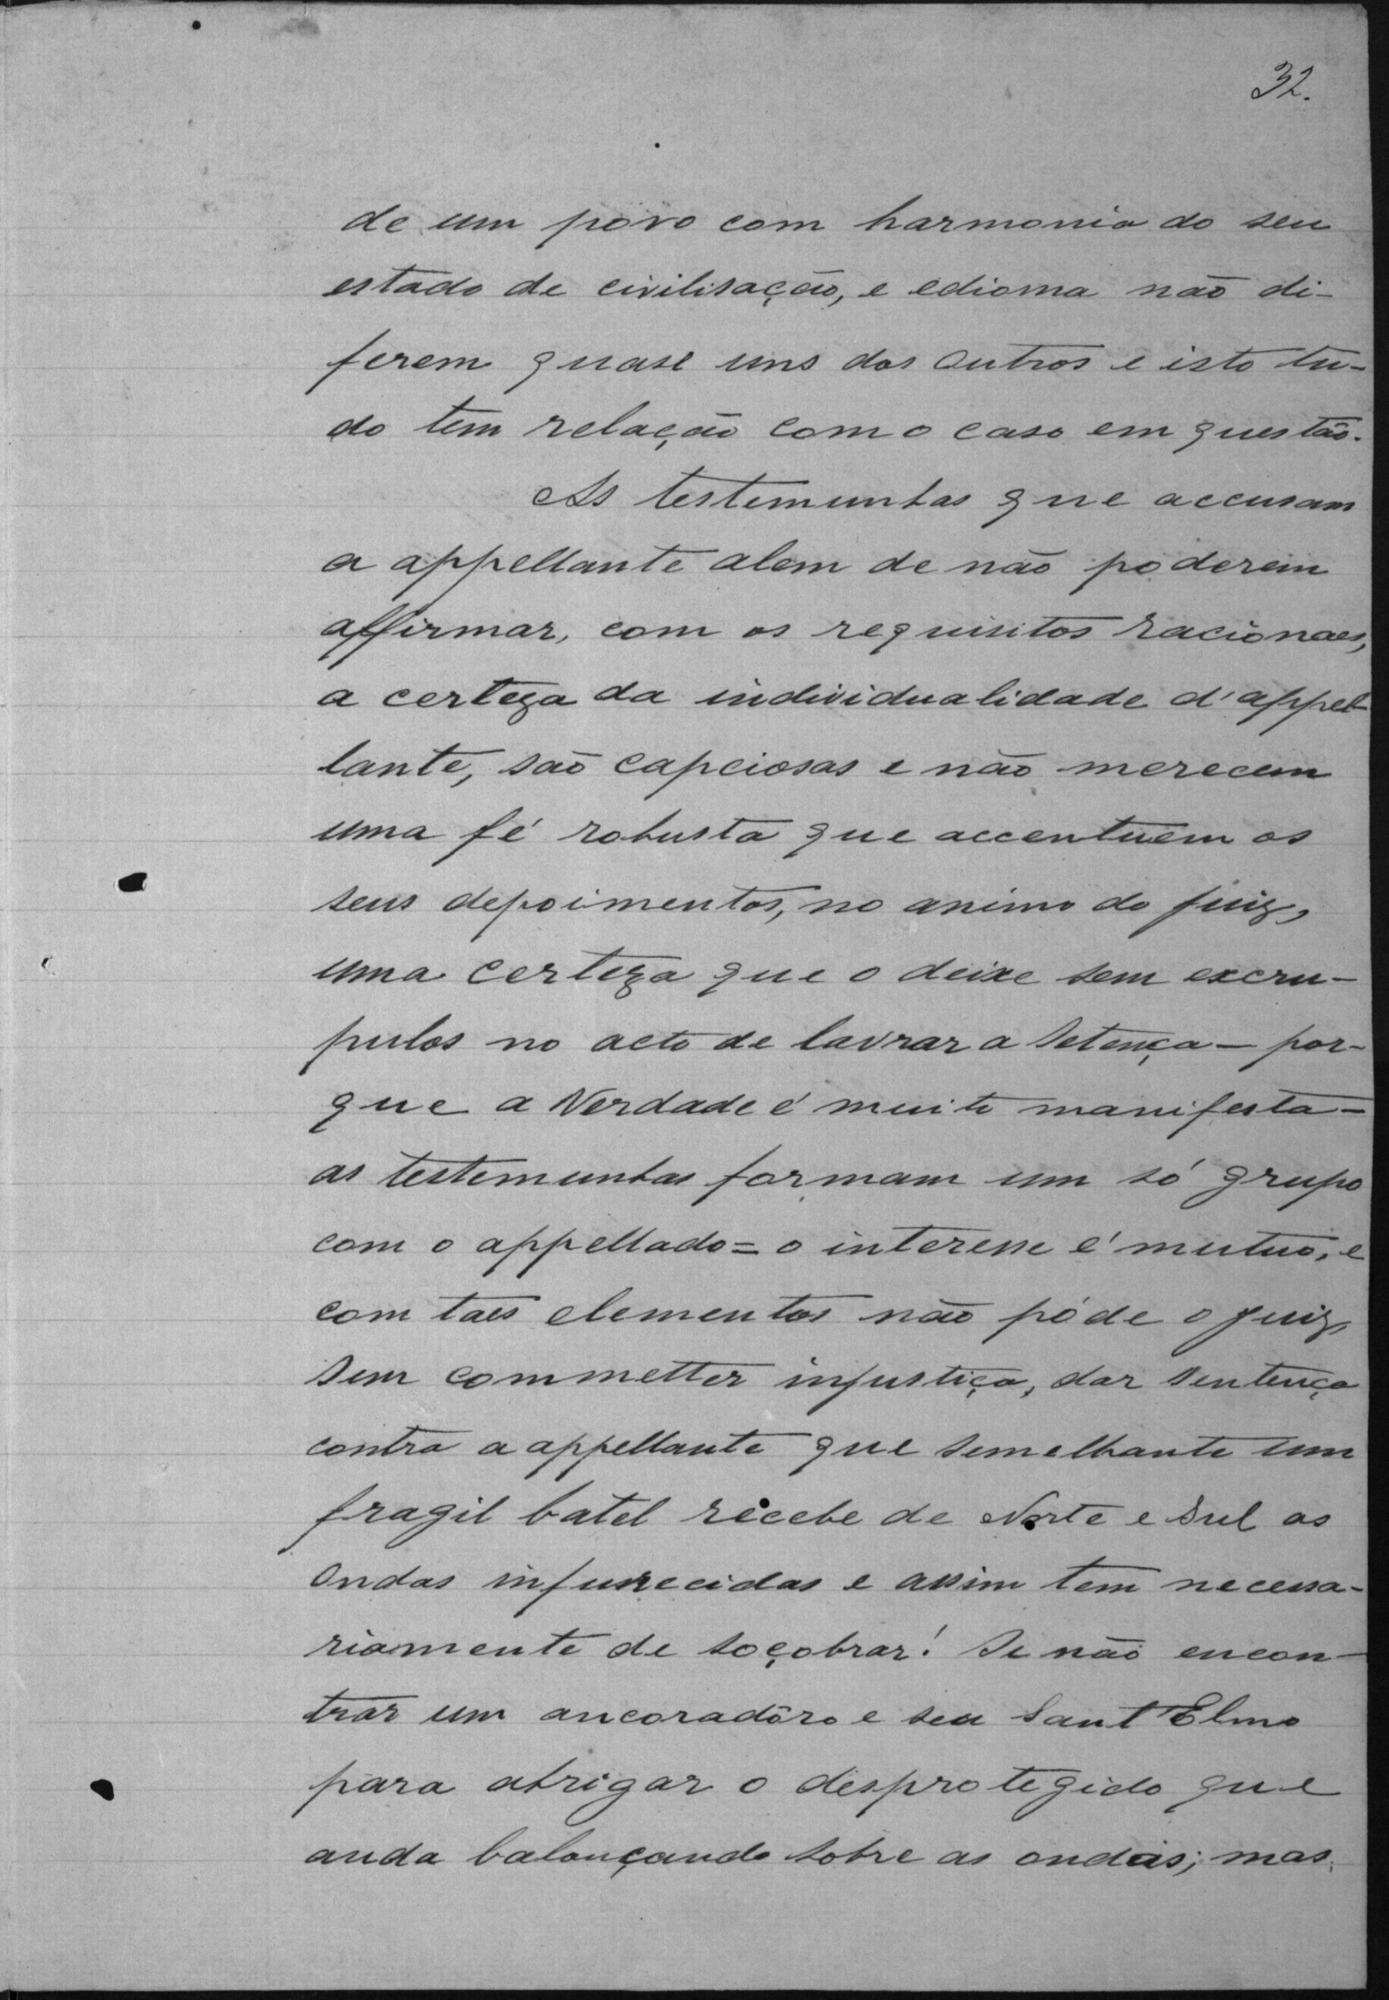 32.
de um povo com harmonia do seu
estado de civilisação, e edioma não di-
ferem quase uns dos outros e isto tu-
do tem relação com o caso em questão.
As testemunhas que accusam
a appellante alem de não poderem
affirmar, com os requisitos racionaes,
a certeza da individualidade d'appel-
lante, são capciosas e não merecem
uma fé robusta que accentuem os
seus depoimentos, no animo do juiz,
uma certeza que o deixe sem excru-
pulos no acto de lavrar a setença — por-
que a Verdade é muito manifesta —
as testemunhas formam um só grupo
com o appellado = o interesse é mutuo, e
com taes elementos não póde o juiz,
sem commetter injustiça, dar sentença
contra a appellante que semelhante um
fragil batel recebe de Norte e Sul as
ondas infurecidas e assim tem necessa-
riamente de soçobrar! Se não encon-
trar um ancoradôro e seu Sant'Elmo
para abrigar o desprotegido que
anda balançando sobre as ondas; mas